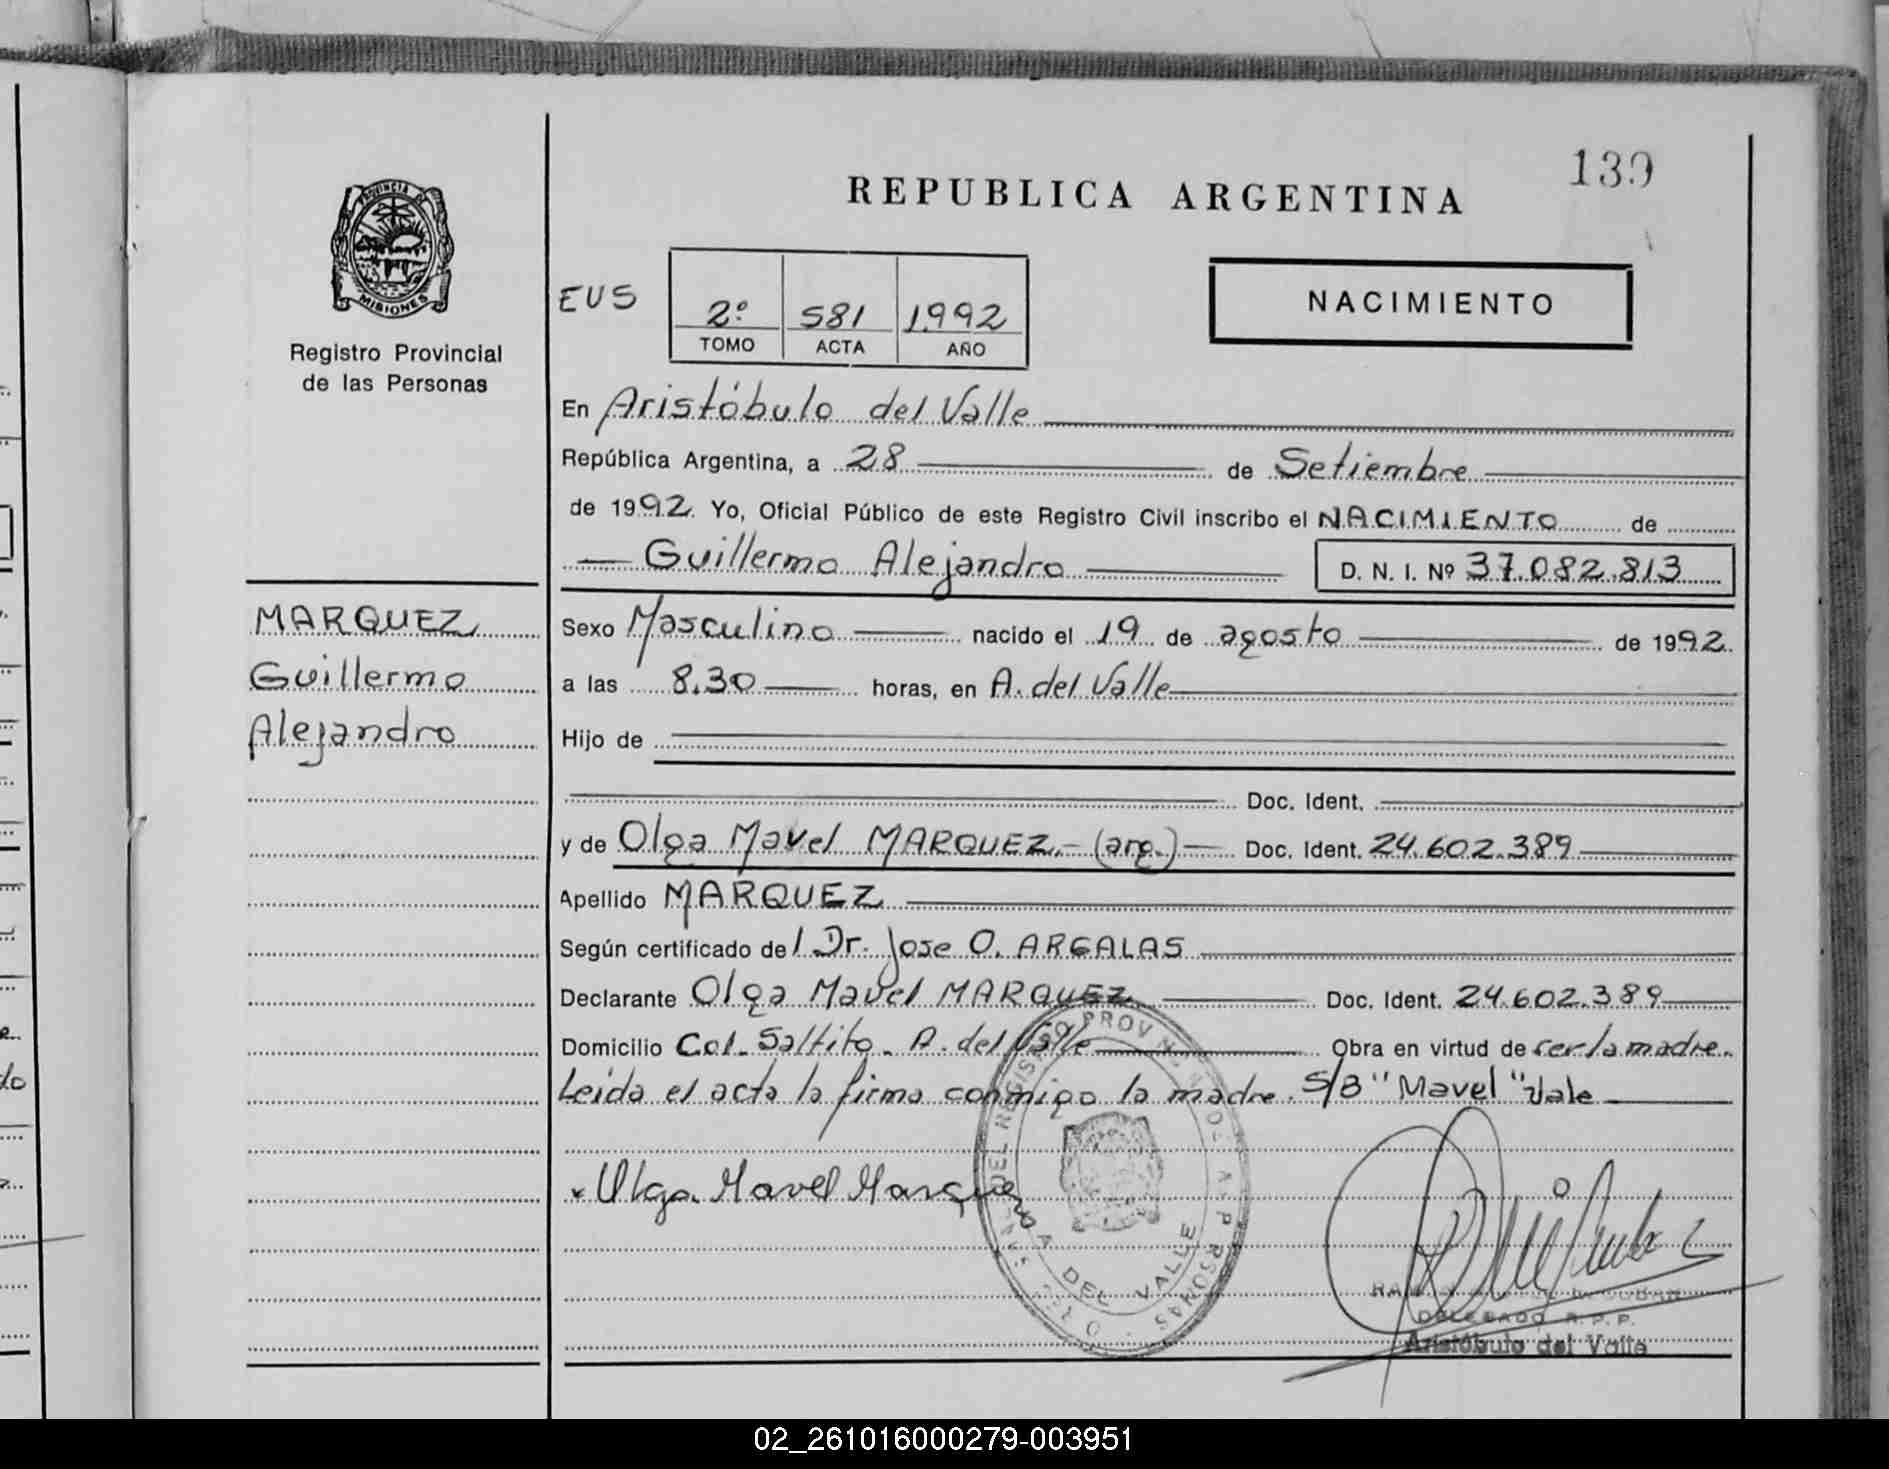 139
REPUBLICA ARGENTINA
PROVINCIA DE
MISIONES
Registro Provincial
de las Personas
EUS
2º 581 1992
TOMO ACTA AÑO
NACIMIENTO
En Aristóbulo del Valle
República Argentina, a 28 de Setiembre
de 1992. Yo, Oficial Público de este Registro Civil inscribo el NACIMIENTO de
Guillermo Alejandro D. N. I. Nº 37.082.813
MARQUEZ
Guillermo
Alejandro
Sexo Masculino nacido el 19 de agosto de 1992.
a las 8.30 horas, en A. del Valle
Hijo de
Doc. Ident.
y de Olga Mavel MARQUEZ.- (arg.)- Doc. Ident. 24.602.389
Apellido MARQUEZ
Según certificado del Dr. Jose O. ARGALAS
Declarante Olga Mavel MARQUEZ Doc. Ident. 24.602.389
Domicilio Col. Saltito. A. del Valle Obra en virtud de ser la madre.
Leida el acta la firma conmigo la madre. S/B "Mavel" Vale
Olga Mavel Marquez
DEL VALLE
DELEGADO R.P.P.
Aristóbulo del Valle
02_261016000279-003951